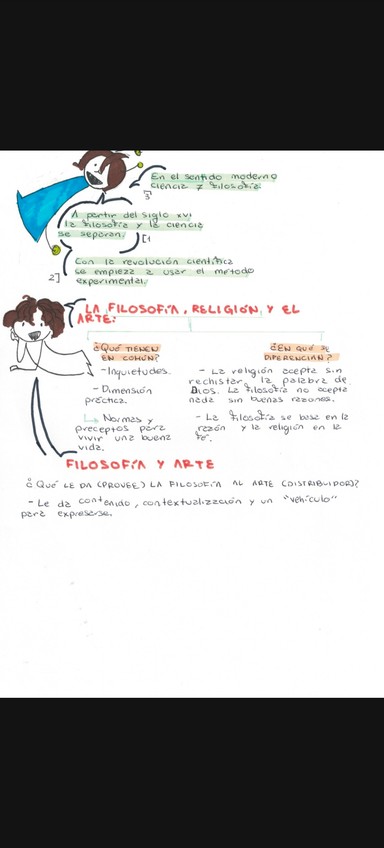 En el sentido moderno
ciencia ≠ filosofía
3
A partir del siglo XVI
la filosofía y la ciencia
se separan.
[1
Con la revolución científica
se empieza a usar el método
experimental.
2]
LA FILOSOFÍA, RELIGIÓN Y EL
ARTE:
¿QUÉ TIENEN
EN COMÚN?
- Inquietudes.
- Dimensión
práctica.
↳ Normas y
preceptos para
vivir una buena
vida.
¿EN QUÉ SE
DIFERENCIAN?
- La religión acepta sin
rechistar la palabra de
Dios. La filosofía no acepta
nada sin buenas razones.
- La filosofía se basa en la
razón y la religión en la
fe.
FILOSOFÍA Y ARTE
¿QUÉ LE DA (PROVEE) LA FILOSOFÍA AL ARTE (DISTRIBUIDOR)?
- Le da contenido, contextualización y un "vehículo"
para expresarse.